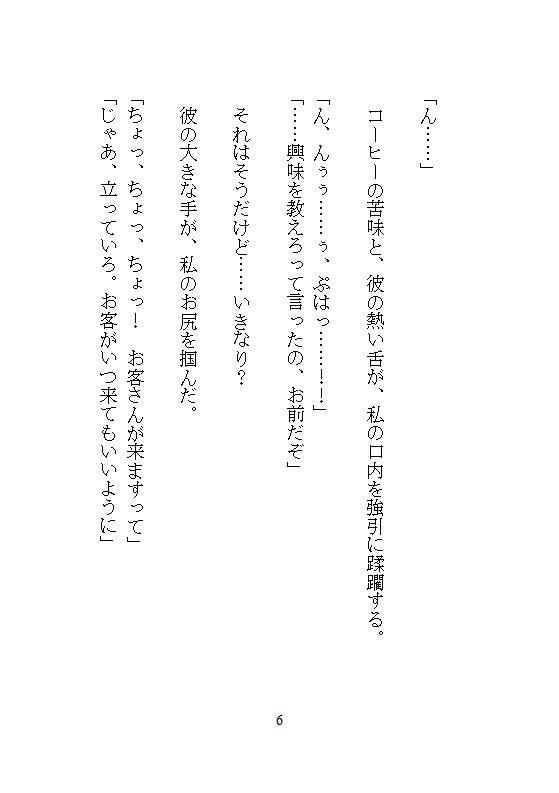 「ん……」
コーヒーの苦味と、彼の熱い舌が、私の口内を強引に蹂躙する。
「ん、んぅぅ……ぅ、ぷはっ……！！」
「……興味を教えろって言ったの、お前だぞ」
それはそうだけど……いきなり？
彼の大きな手が、私のお尻を掴んだ。
「ちょっ、ちょっ、ちょっ！　お客さんが来ますって」
「じゃあ、立っていろ。お客がいつ来てもいいように」
6